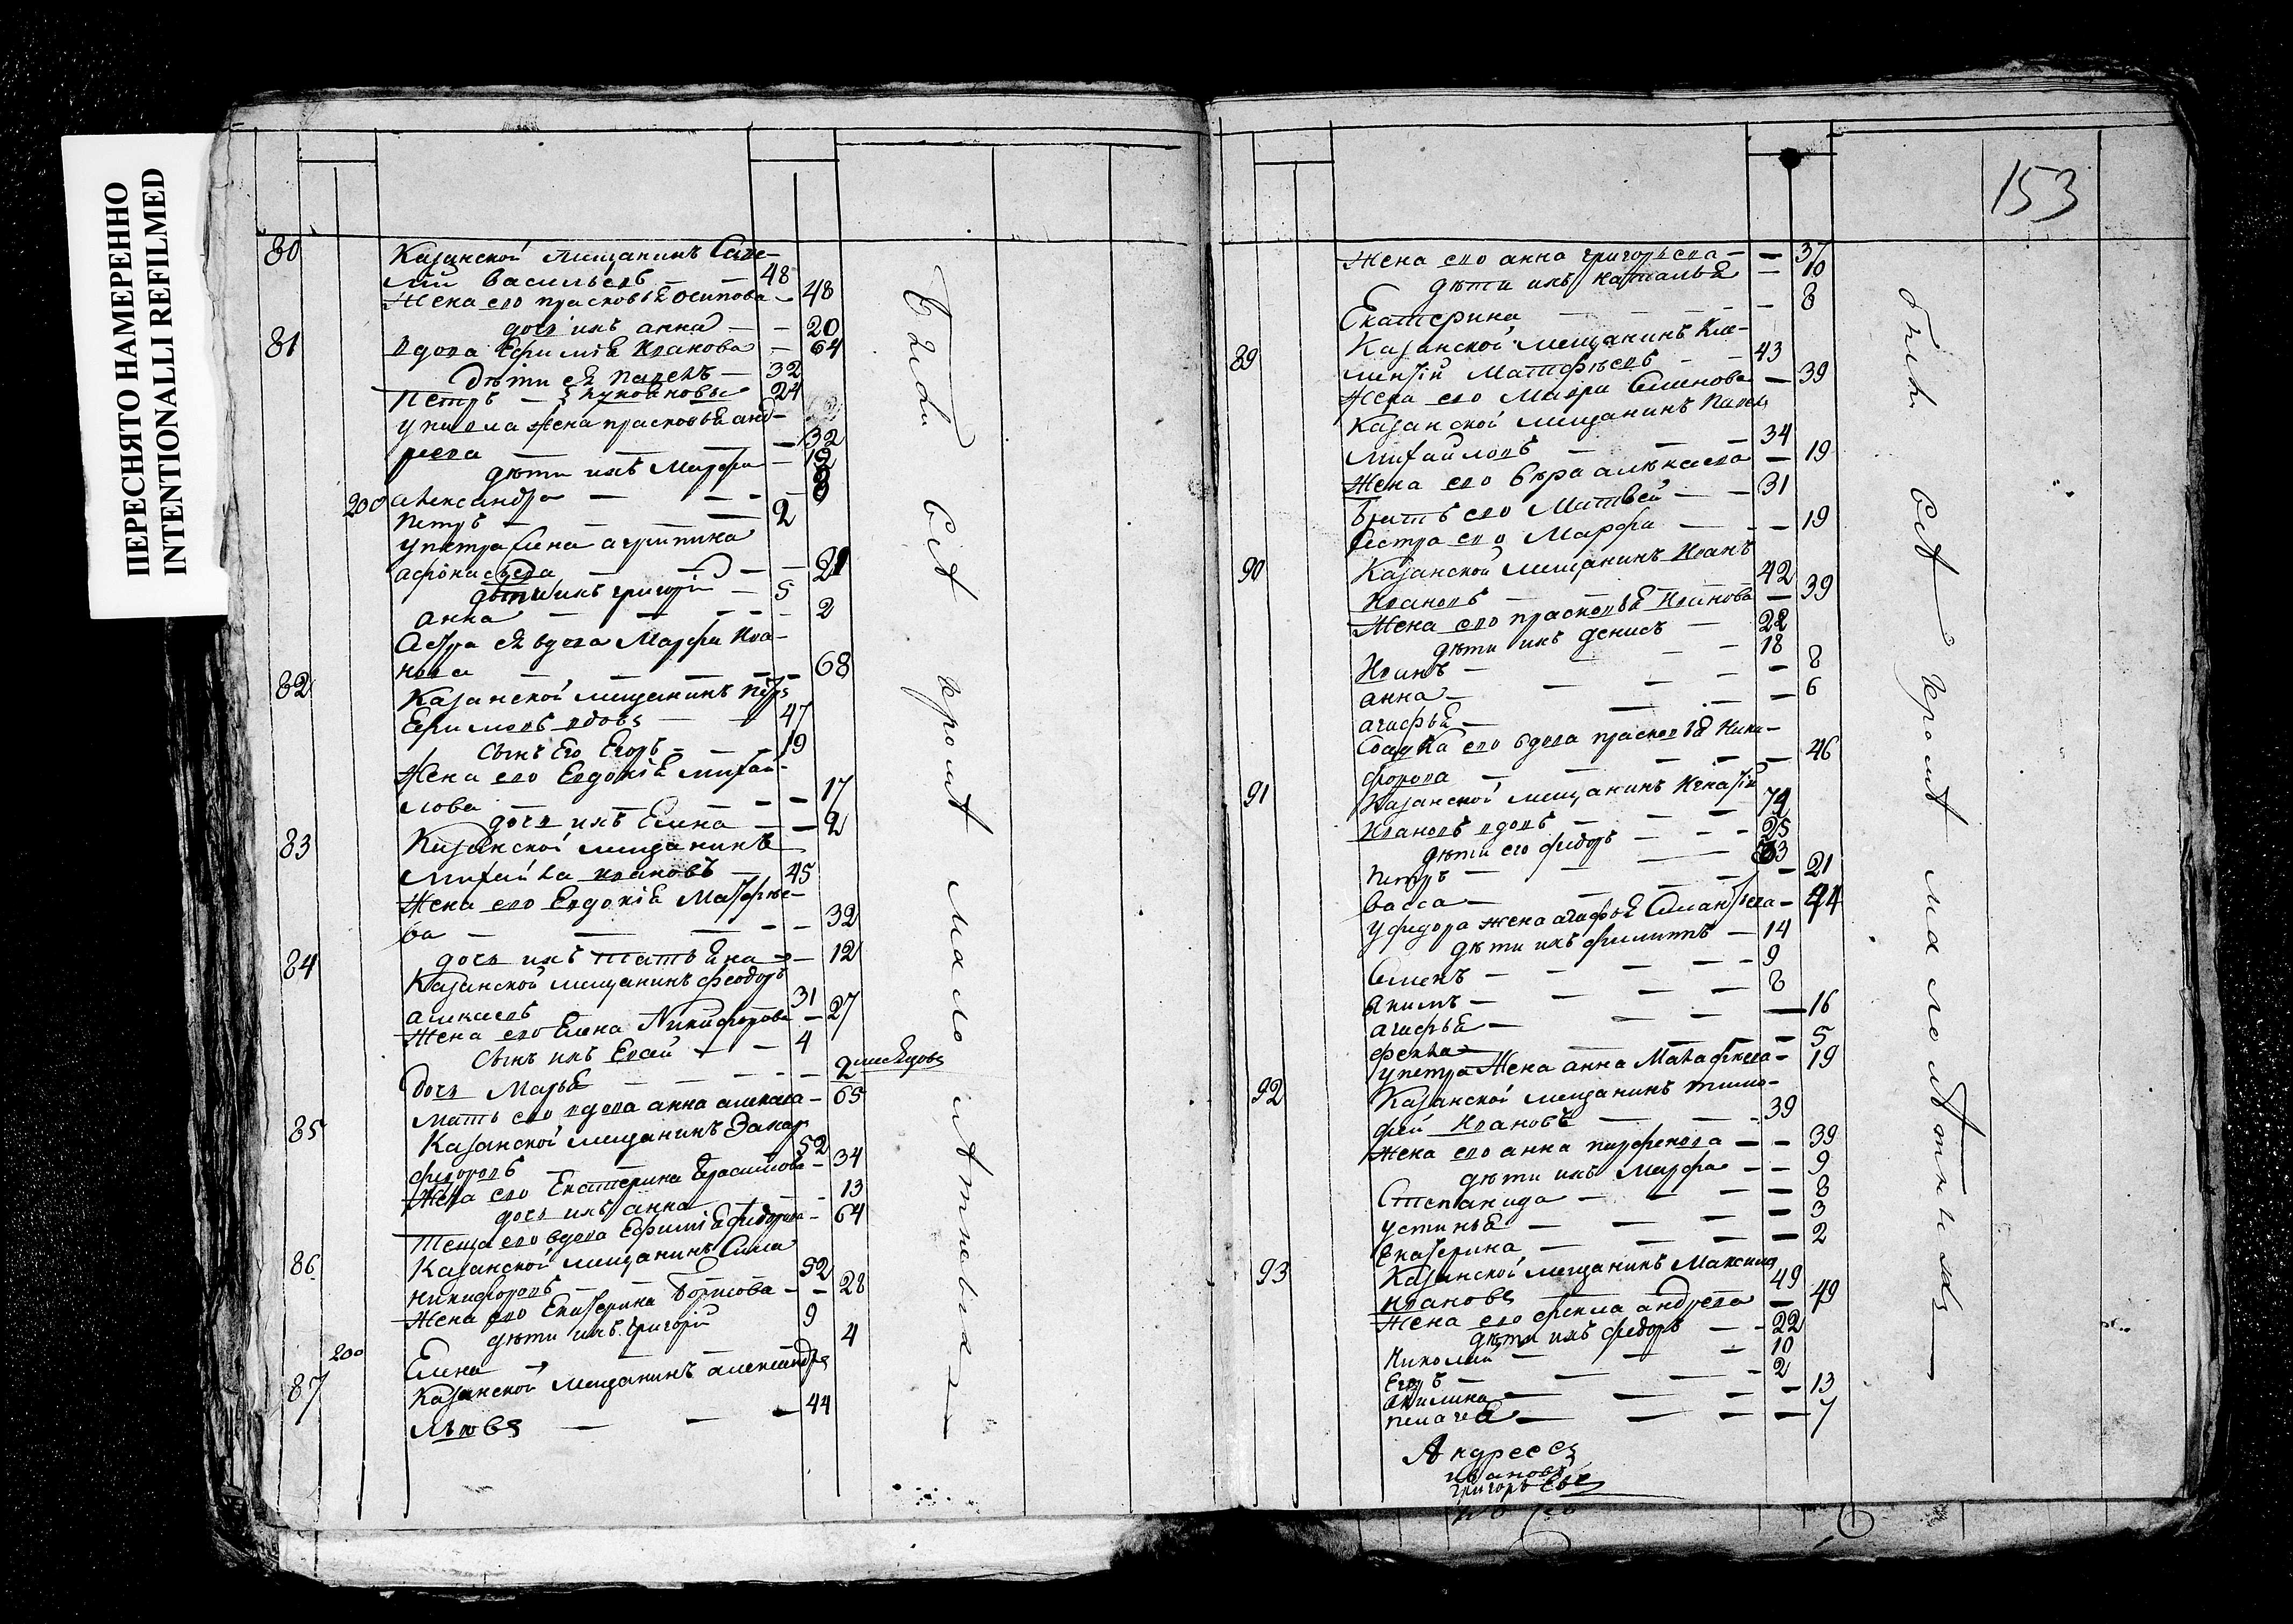 ПЕРЕСНЯТО НАМЕРЕННО
INTENTIONALLI REFILMED
80 Казанской мещанинъ Саве-
лий Васильевъ — — 48
Жена его прасковья осипова — 48
дочь ихъ анна — — 20
81 вдова Ефимія Иванова — 64
дѣти ея павелъ — 32
петръ — 24
у павла жена прасковья анд-
реева — 32
дѣти ихъ Марфа — 12
200 александра — — — 8
петръ — — 2
у петра жена агрипина
афонасьева — — — 21
дѣти ихъ григорий — 5
анна — — — — 2
вдова Марфа Ива-
нова — — — — 68
82 Казанской мещанинъ петръ
Ефимовъ вдовъ — — 47
сынъ Его Егоръ — — 19
жена его Евдокія михай-
лова — — 17
дочь ихъ Елена — — 2
83 Казанской мещанинъ
михайла ивановъ — 45
жена его Евдокія Матфѣе-
ва — — — — 32
дочь ихъ татьяна — — 12
84 Казанской мещанинъ феодоръ
алексеевъ 31
жена его Елена Никифорова — 27
сынъ ихъ Евсей — — 4
дочь Марья — — — — 2 месяцовъ
мать его вдова анна алексеева — 65
85 Казанской мещанинъ Захаръ
федоровъ 52
жена его Екатерина Герасимова — 34
дочь ихъ анна — — 13
теща его вдова Ефимія федорова — 64
86 Казанской мещанинъ Сила
никифоровъ — 52
жена его Екатерина борисова — — 28
дѣти ихъ григорий 9
200 Елена — 4
87 Казанской мещанинъ александръ
львовъ — — — 44
Были всѣ кромѣ малолѣтныхъ
153
жена его анна григорьева — — 37
дѣти ихъ наталья — 10
Екатерина — — — — 8
89 Казанской мещанинъ Кле-
ментий Матфѣевъ — — 43
жена его Мавра Семенова — 39
Казанской мещанинъ павелъ
михайловъ — — — 34
жена его вѣра алексеева — 19
братъ его Матвей — — 31
сестра его Марфа — — — 19
90 Казанской мещанинъ иванъ
ивановъ — — 42
жена его прасковья Иванова — 39
дѣти ихъ денисъ — 22
Иванъ — — — 18
анна — — — — 8
агафья — — — — 6
его вдова прасковья Ники-
форова — — — — 46
91 Казанской мещанинъ Игнатий
Ивановъ вдовъ — — — 74
дѣти его федоръ — — 25
петръ — — — 23
васса — — — — 21
у федора жена агафья — 44
дѣти ихъ филиппъ — 14
Семенъ — — — — 9
акимъ — — — — 8
агафья — — — — 16
фекла — — — 5
у петра жена анна — 19
92 Казанской мещанинъ тимо-
фей Ивановъ — — — 39
жена его анна парфенова — — 39
дѣти ихъ Марфа — — 9
степанида — — — — 8
устинья — — — — 3
Екатерина — — — — 2
93 Казанской мещанинъ Максимъ
Ивановъ 49
жена его фекла андреева — 49
дѣти ихъ федоръ — — 22
Николай — — — 10
Егоръ — — — — 2
акилина — — — — 13
пелагея — — — — 7
Были всѣ кромѣ малолѣтнихъ
Андреевъ
ивановъ
григорьевъ